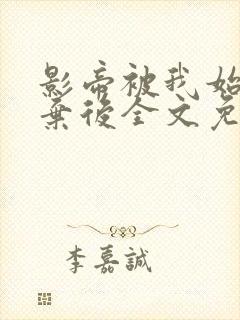 影帝被我始
棄後全文免
李嘉誠